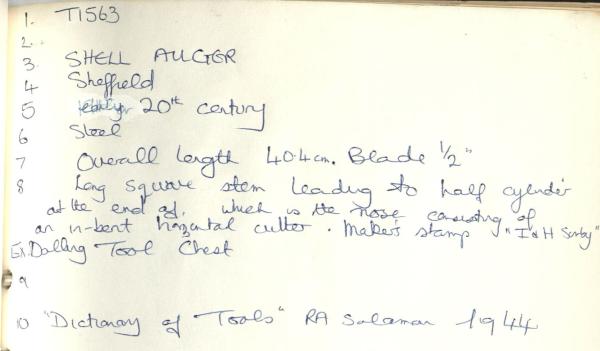 1. T1563
2.
3 SHELL AUGER
4 Sheffield
5 early 20th century
6 Steel
7 Overall length 40.4cm. Blade 1/2"
8 Long square stem leading to half cylinder
at the end of, which is the nose consisting of
an in-bent horizontal cutter. Makers stamp "I & H Sorby"
Ex. Dalling Tool Chest
9
10 "Dictionary of Tools" RA Salaman 1944